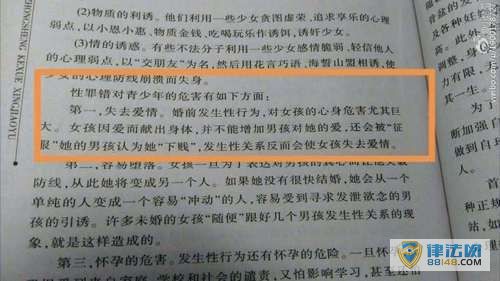 (2)物质的利诱。他们利用一些少女贪图虚荣，追求享乐的心理
弱点，以小恩小惠，物质金钱，吃喝玩乐作诱饵，诱奸少女。
(3)情的诱惑。有些不法分子利用一些少女感情脆弱，轻信他人
的心理弱点，以“交朋友”为名，然后用花言巧语，海誓山盟相诱，使
少女的心理防线崩溃而失身。
性罪错对青少年的危害有如下方面：
第一，失去爱情。婚前发生性行为，对女孩的心身危害尤其巨
大。女孩因爱而献出身体，并不能增加男孩对她的爱，还会被“征
服”她的男孩认为她“下贱”，发生性关系反而会使女孩失去爱情。
第二，容易堕落。女孩一旦为了表达对男孩的真心而让他突破
防线，从此她将变成另一个人。如果她没有很快结婚，她会从一个
单纯的人变成一个容易“冲动”的人，容易受到寻求发泄欲念的男
孩的引诱。许多未婚的女孩“随便”跟好几个男孩发生性关系的现
象，就是这样造成的。
第三，怀孕的危害。发生性行为还有怀孕的危险。一旦怀孕
学校和社会的谴责，又怕影响学习，甚至
ZHONGSHENG KEXUE XINGJIAOYU
及各种妊
高。此外
调整，身
力有限，
其一生
断加强自
做到自珍
首
种正规
站，
律法网
88148.com